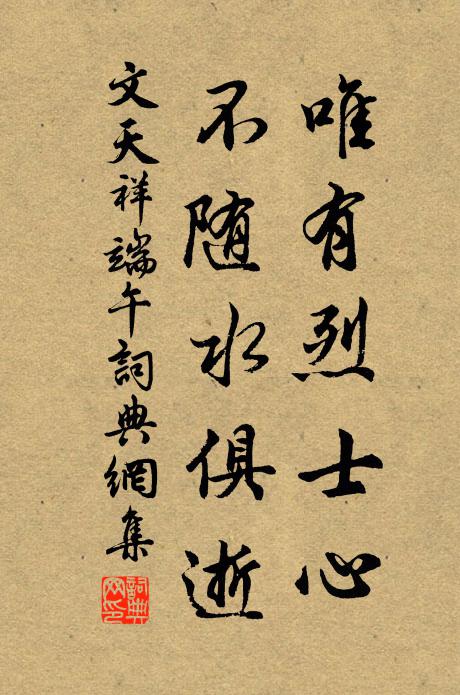 唯有烈士心
不随水俱逝
文天祥端午詞典網集
詞典網印